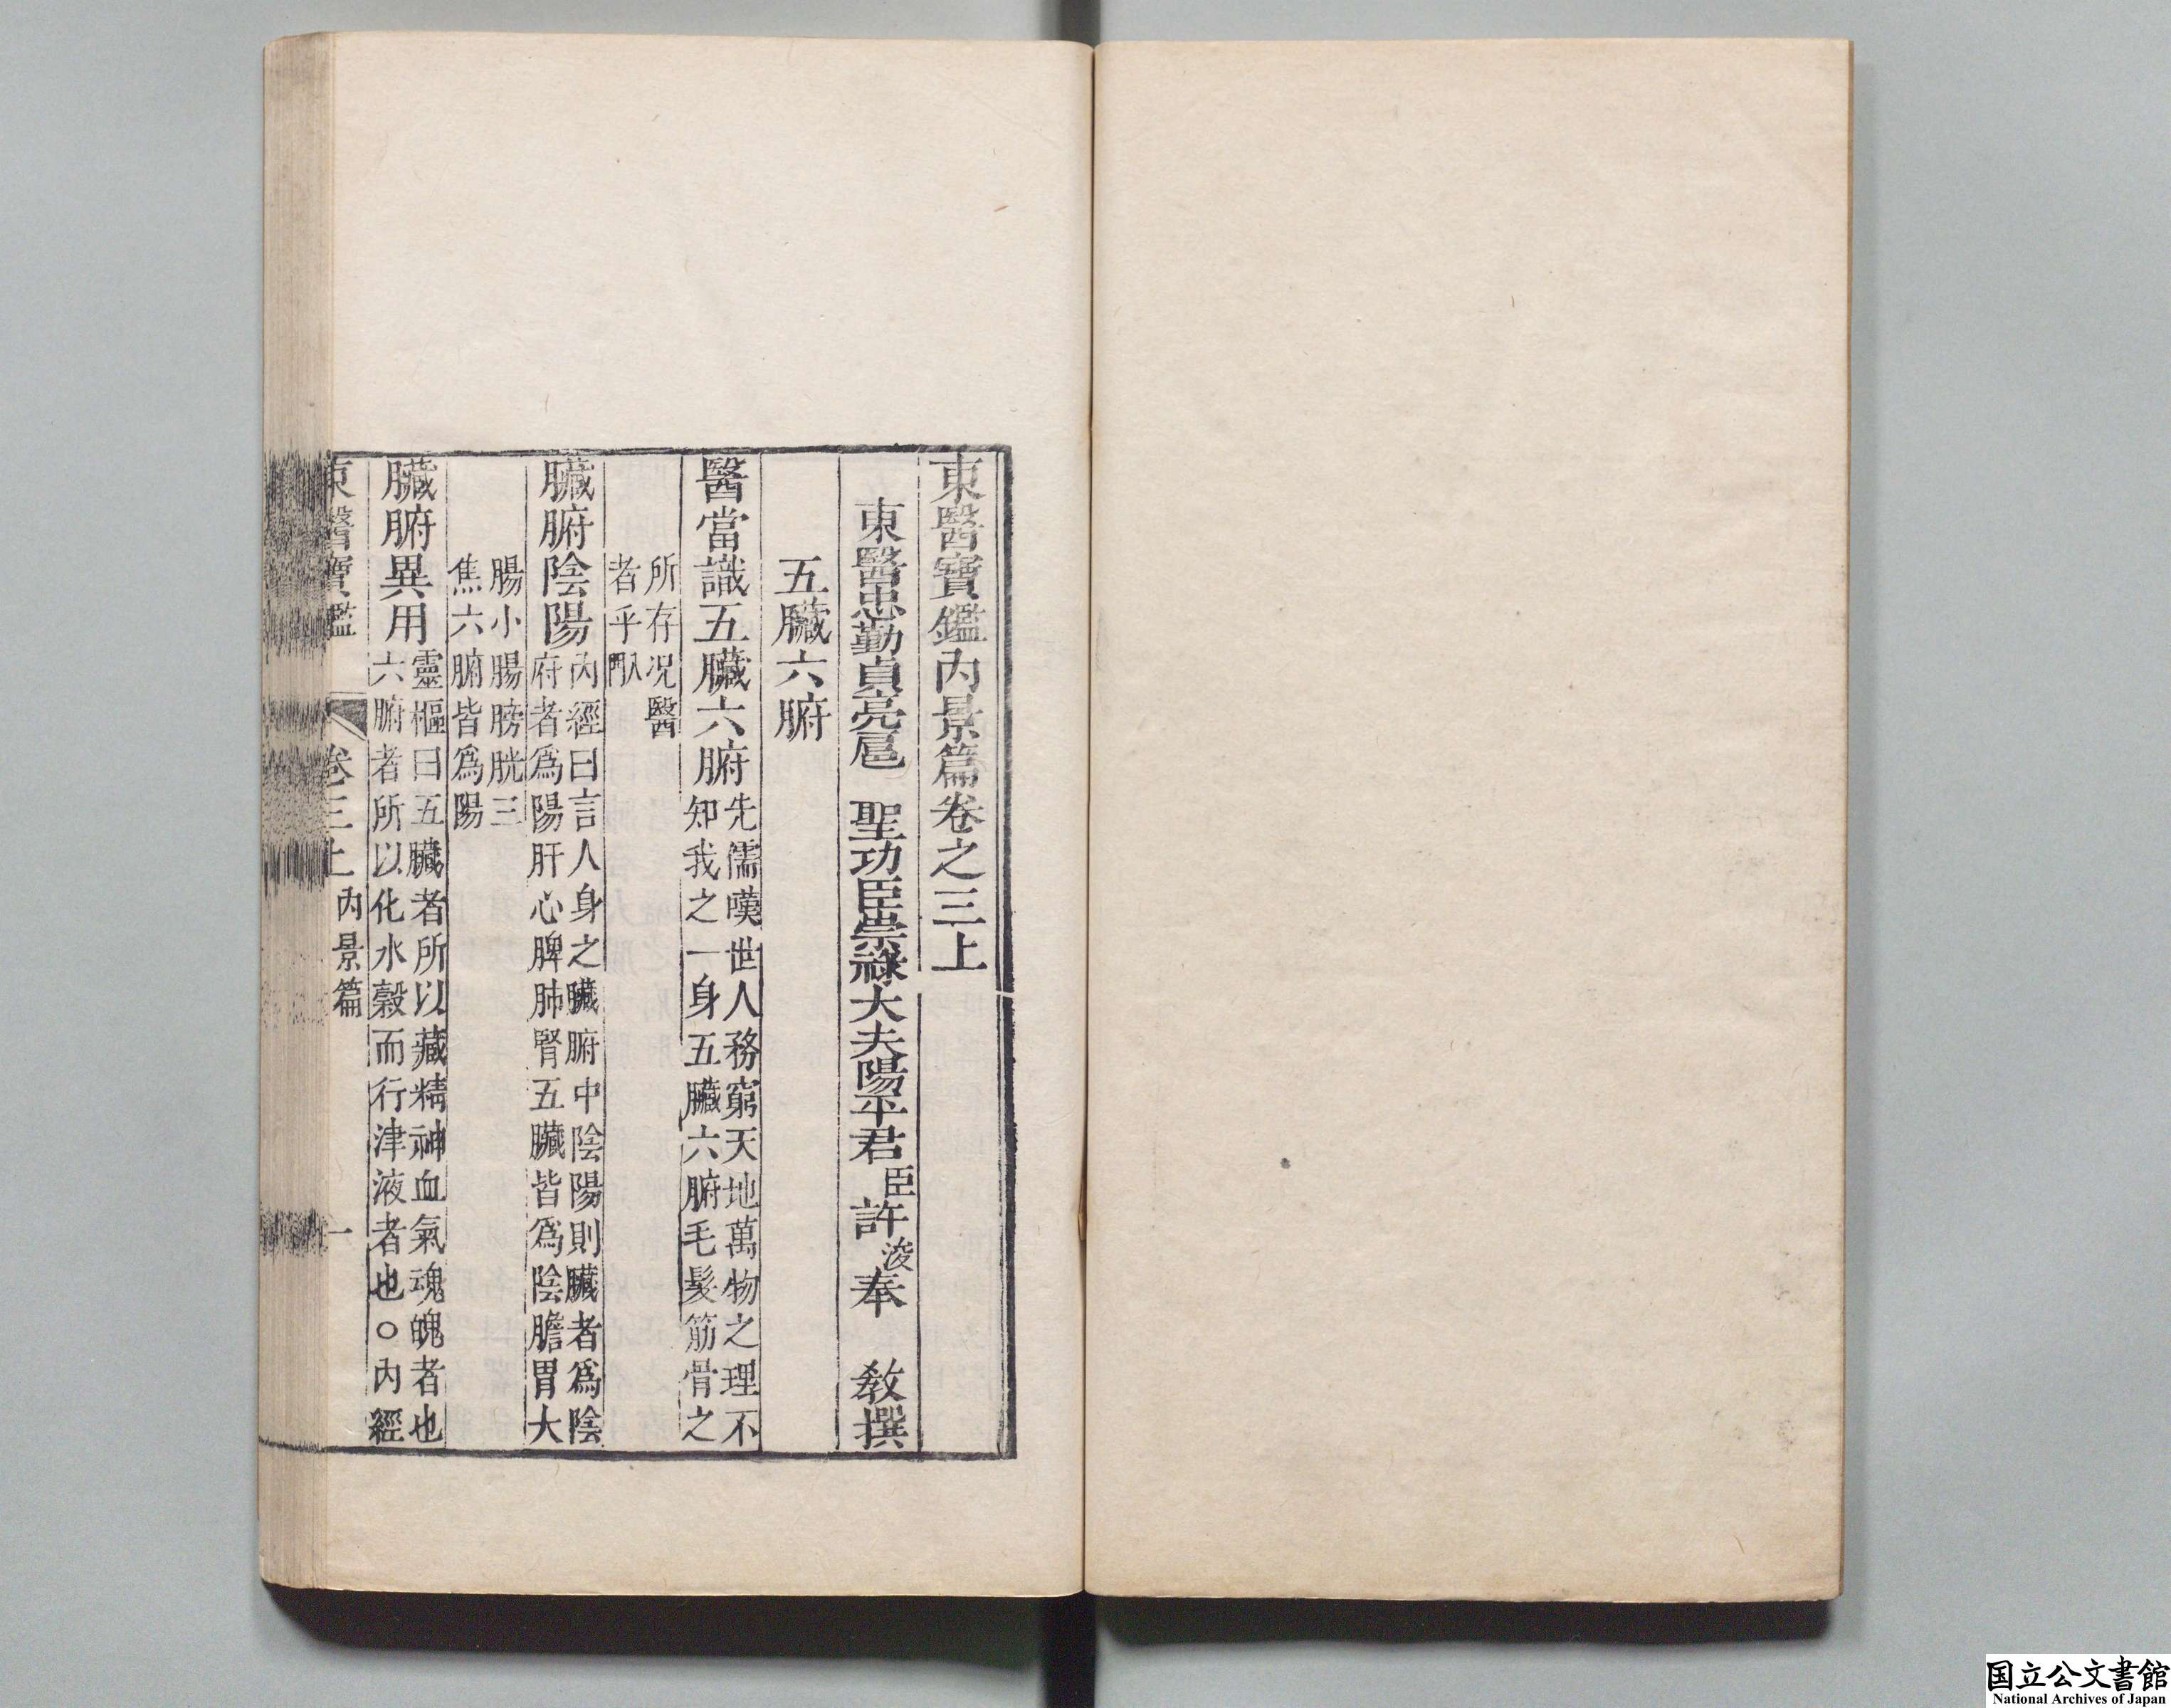 東醫寶鑑內景篇卷之三上
東醫忠勤貞亮扈 聖功臣崇祿大夫陽平君臣許浚奉 敎撰
五臟六腑
醫當識五臟六腑先儒嘆世人務窮天地萬物之理不
知我之一身五臟六腑毛髮筋骨之
所存况醫
者乎入門
臟腑陰陽內經曰言人身之臟腑中陰陽則臟者爲陰
府者爲陽肝心脾肺腎五臟皆爲陰膽胃大
腸小腸膀胱三
焦六腑皆爲陽
臟腑異用靈樞曰五臟者所以藏精神血氣魂魄者也
六腑者所以化水穀而行津液者也○內經
東醫寶鑑 卷三上 內景篇 一
国立公文書館
National Archives of Japan